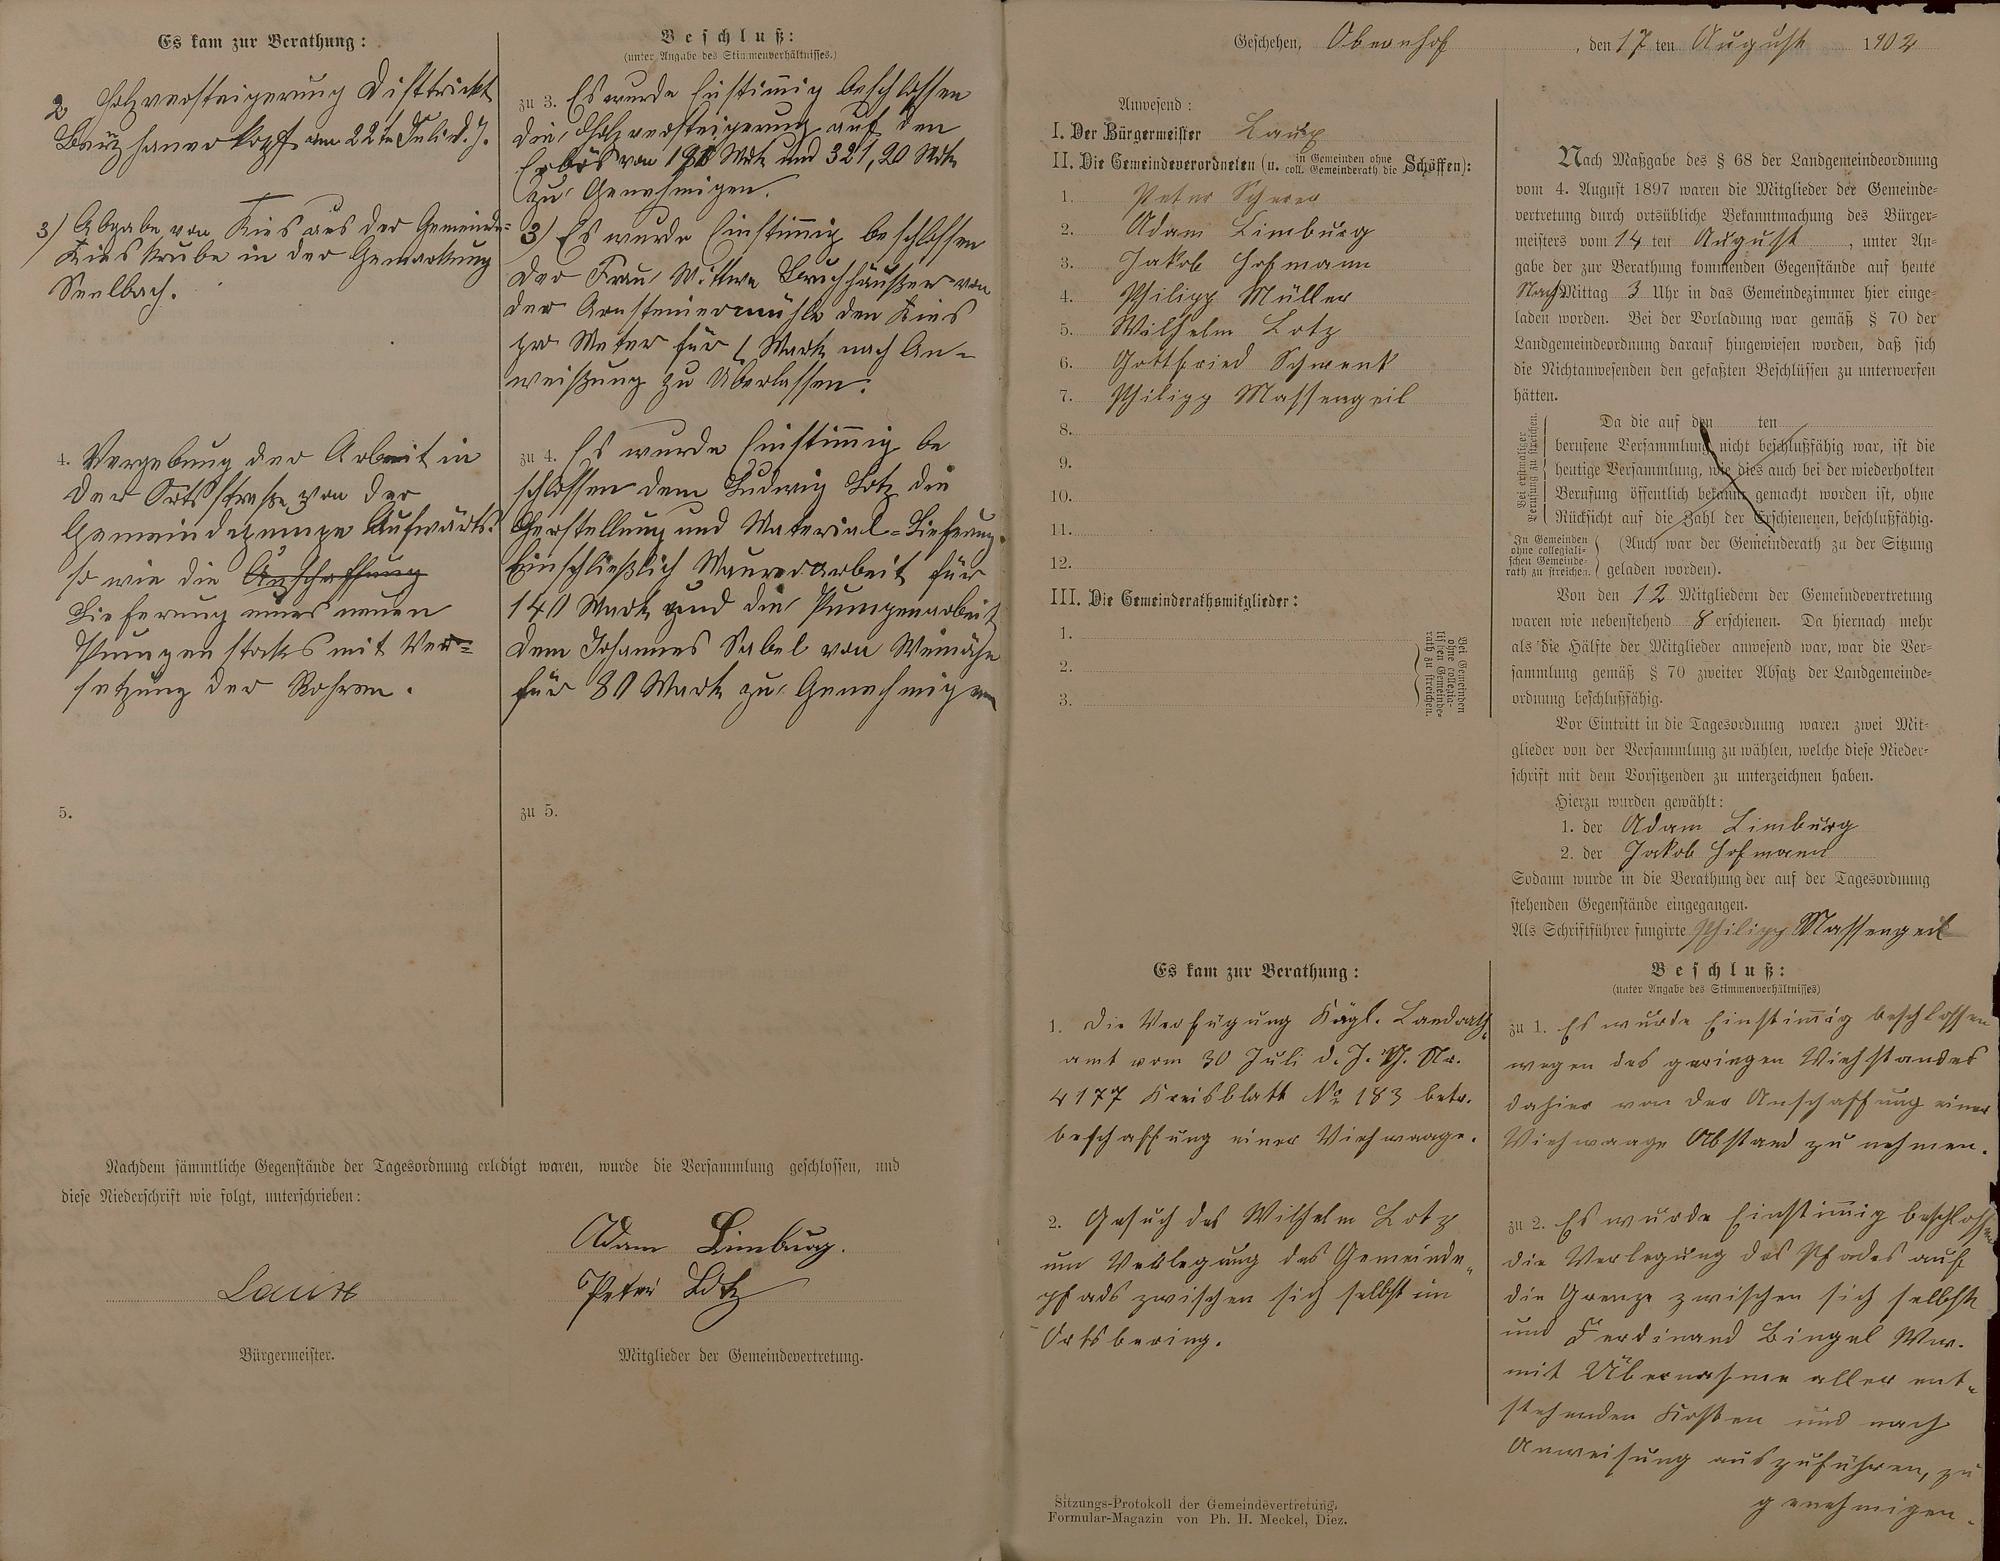 Es kam zur Berathung:
2 Holzversteigerung Disttrickt
am 22ten Juli d. J.
3) Abgabe von Kies aus der Gemeinde-
Kieskrube in der Gemarkung
Seelbach.
4. Vergebung der Arbeit in
der Ortsstraße von der
Gemeindepumpe Aufwärts.
so wie die Anschaffung
Lieferung eines neuen
Pumpenstockes mit Ver=
setzung der Rohren.
5.
Beschluß:
(unter Angabe des Stimmenverhältnisses.)
zu 3. Es wurde Einstimmig beschlossen
die Holzversteigerung auf den
Erlös von Mrk und 321,20 Mrk
zu Genehmigen.
3) Es wurde Einstimmig beschlossen
der Frau Wittwe Bruchhäußer von
der Arnsteinermühle den Kies
pro Meter für 1 Mark nach An-
weißung zu Überlassen.
zu 4. Es wurde Einstimmig be
schlossen dem Ludwig Lotz die
Herstellung und Material-Lieferung
Einschließlich Maurerarbeit für
140 Mark und die Pumpenarbeit
dem Johannes Sabel von Weinähr
für 80 Mark zu Genehmigen
zu 5.
Nachdem sämmtliche Gegenstände der Tagesordnung erledigt waren, wurde die Versammlung geschlossen, und
diese Niederschrift wie folgt, unterschrieben:
Adam Limburg.
Peter Lotz
Bürgermeister.
Mitglieder der Gemeindevertretung.
Geschehen, Obernhof, den 17ten August 1902
Anwesend:
I. Der Bürgermeister
II. Die Gemeindeverordneten (u. in Gemeinden ohne coll. Gemeinderath die Schöffen):
1. Peter Scherer
2. Adam Limburg
3. Jakob Hofmann
4. Philipp Müller
5. Wilhelm Lotz
6. Gottfried Schwenk
7. Philipp Massengeil
8.
9.
10.
11.
12.
III. Die Gemeinderathsmitglieder:
1.
2.
3.
Bei Gemeinden
ohne collegia-
lischen Gemeinde-
rath zu streichen.
Nach Maßgabe des § 68 der Landgemeindeordnung
vom 4. August 1897 waren die Mitglieder der Gemeinde-
vertretung durch ortsübliche Bekanntmachung des Bürger-
meisters vom 14 ten August, unter An-
gabe der zur Berathung kommenden Gegenstände auf heute
NachMittag 3 Uhr in das Gemeindezimmer hier einge-
laden worden. Bei der Vorladung war gemäß § 70 der
Landgemeindeordnung darauf hingewiesen worden, daß sich
die Nichtanwesenden den gefaßten Beschlüssen zu unterwerfen
hätten.
Bei erstmaliger
Berufung zu streichen.
Da die auf den ten
berufene Versammlung nicht beschlußfähig war, ist die
heutige Versammlung, wie dies auch bei der wiederholten
Berufung öffentlich bekannt gemacht worden ist, ohne
Rücksicht auf die Zahl der Erschienenen, beschlußfähig.
In Gemeinden
ohne collegiali-
schen Gemeinde-
rath zu streichen.
(Auch war der Gemeinderath zu der Sitzung
geladen worden).
Von den 12 Mitgliedern der Gemeindevertretung
waren wie nebenstehend 8 erschienen. Da hiernach mehr
als die Hälfte der Mitglieder anwesend war, war die Ver-
sammlung gemäß § 70 zweiter Absatz der Landgemeinde-
ordnung beschlußfähig.
Vor Eintritt in die Tagesordnung waren zwei Mit-
glieder von der Versammlung zu wählen, welche diese Nieder-
schrift mit dem Vorsitzenden zu unterzeichnen haben.
Hierzu wurden gewählt:
1. der Adam Limburg
2. der Jakob Hofmann
Sodann wurde in die Berathung der auf der Tagesordnung
stehenden Gegenstände eingegangen.
Als Schriftführer fungirte Philipp Massengeil
Es kam zur Berathung:
1. Die Verfügung Kögl. Landrath-
amt vom 30 Juli d. J. Nr.
4177 Kreisblatt No 183 betr.
beschaffung einer Viehwaage.
2. Gesuch des Wilhelm Lotz
um Verlegung des Gemeinde-
pfads zwischen sich selbst im
Ortsbering.
Beschluß:
(unter Angabe des Stimmenverhältnisses)
zu 1. Es wurde Einstimig beschlossen
wegen des geringen Viehstandes
dahier von der Anschaffung einer
Viehwaage Abstand zu nehmen.
zu 2. Es wurde Einstimig beschlossen
die Verlegung des Pfades auf
die Grenze zwischen sich selbst
und Ferdinand Bingel Wwe.
mit Übernahme aller ent-
stehenden Kosten und nach
Anweisung auszuführen, zu
genehmigen.
Sitzungs-Protokoll der Gemeindevertretung.
Formular-Magazin von Ph. H. Meckel, Diez.